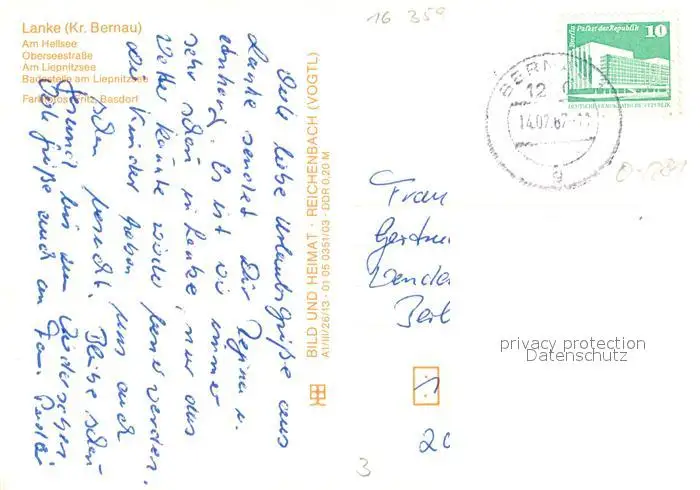 Lanke (Kr. Bernau)
Am Hellsee
Oberseestraße
Am Liepnitzsee
Badestelle am Liepnitzsee
Farbfotos: Fritz, Basdorf
Viele liebe Urlaubsgrüße aus
Lanke sendet Dir Regina u.
Es ist wie immer
sehr schön in Lanke, nur das
Wetter könnte noch werden.
die Kinder haben uns auch
schon besucht. Bleibe schön
gesund bis zum Wiedersehen
Viele Grüße auch an Fam.
BILD UND HEIMAT · REICHENBACH (VOGTL)
A1/III/26/13 · 01 05 0351/03 · DDR 0,20 M
16 359
Berlin, Palast der Republik
10
DEUTSCHE DEMOKRATISCHE REPUBLIK
BERN
12
14.07.87-11
g
Frau
Berl
privacy protection
Datenschutz
1
20
3